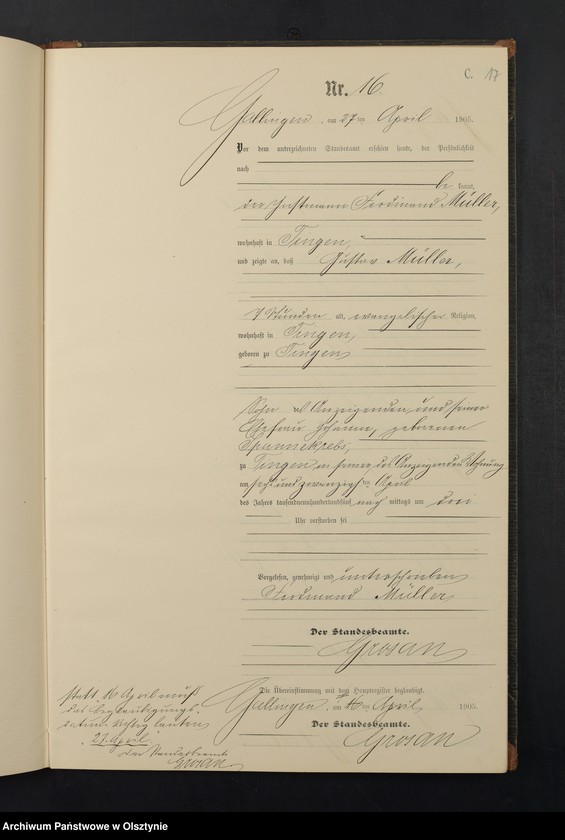 C. 17
Nr. 16.
Gallingen, am 27ten April 1905.
Vor dem unterzeichneten Standesamt erschien heute, der Persönlichkeit
nach
be kannt,
der Instmann Ferdinand Müller,
wohnhaft in Tingen,
und zeigte an, daß Gustav Müller,
7 Stunden alt, evangelischer Religion,
wohnhaft in Tingen,
geboren zu Tingen,
Sohn des Anzeigenden und seiner
Ehefrau Johanne, geborenen
Spannekrebs,
zu Tingen, in seiner, des Anzeigenden Wohnung
am sechsundzwanzigsten April
des Jahres tausendneunhundertundfünf nach mittags um drei
Uhr verstorben sei
Vorgelesen, genehmigt und unterschrieben
Ferdinand Müller
Der Standesbeamte.
Grosan
Die Übereinstimmung mit dem Hauptregister beglaubigt.
Gallingen, am 16ten April 1905.
Der Standesbeamte.
Grosan
statt 16 April muß
das Beglaubigungs-
datum richtig lauten
"27. April".
Der Standesbeamte
Grosan
Archiwum Państwowe w Olsztynie